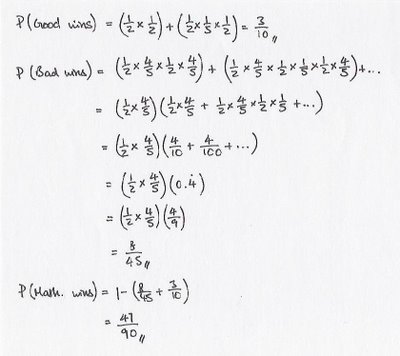 P(Good wins) = (1/2 × 1/2) + (1/2 × 1/5 × 1/2) = 3/10 //
P(Bad wins) = (1/2 × 4/5 × 1/2 × 4/5) + (1/2 × 4/5 × 1/2 × 1/5 × 1/2 × 4/5) + ...
= (1/2 × 4/5) (1/2 × 4/5 + 1/2 × 4/5 × 1/2 × 1/5 + ...)
= (1/2 × 4/5) (4/10 + 4/100 + ...)
= (1/2 × 4/5) (0.4̇)
= (1/2 × 4/5) (4/9)
= 8/45 //
P(Math. wins) = 1 - (8/45 + 3/10)
= 47/90 //